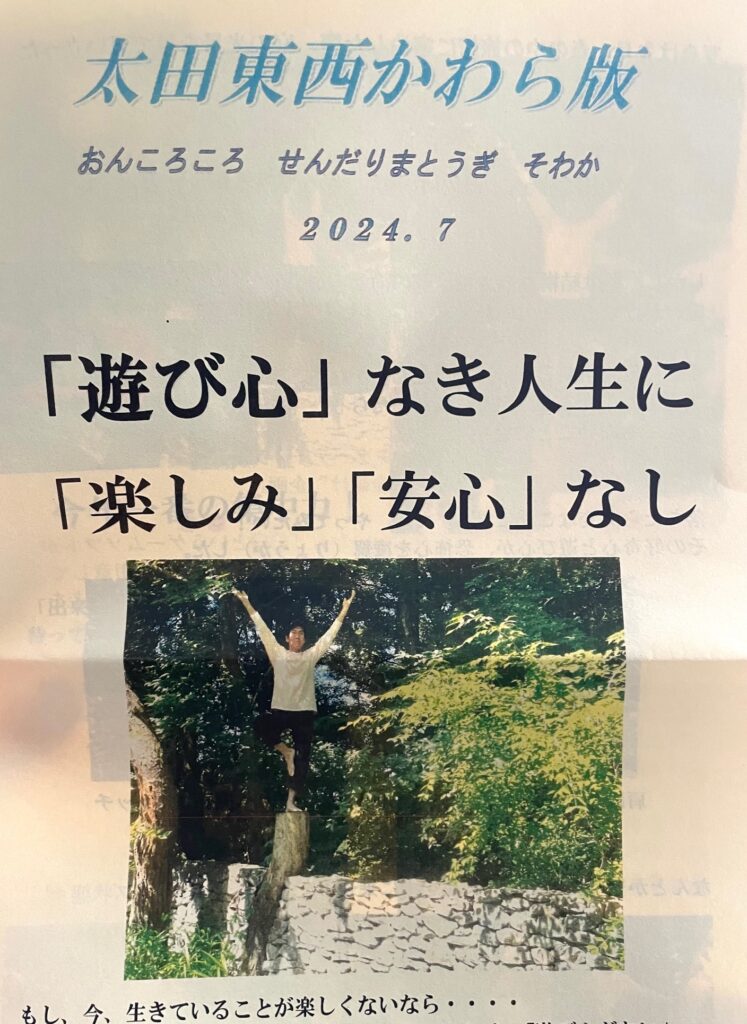 太田東西かわら版
おんころころ　せんだりまとうぎ　そわか
2024. 7
「遊び心」なき人生に
「楽しみ」「安心」なし
もし、今、生きていることが楽しくないなら・・・・